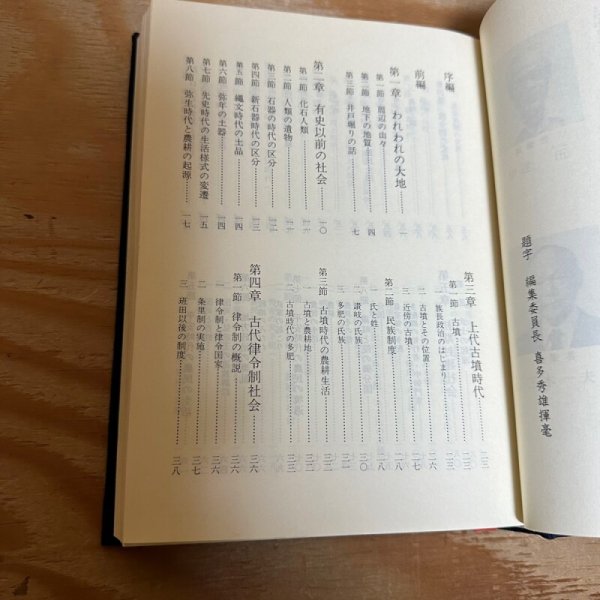 題字 編集委員長 喜多秀雄揮毫
序編
前編
第一章 われわれの大地
第一節 周辺の山々……一
第二節 地下の地質……四
第三節 井戸堀りの話……七
第二章 有史以前の社会……一〇
第一節 化石人類……
第二節 人類の遺物……
第三節 石器の時代の区分……
第四節 新石器時代の区分……一三
第五節 縄文時代の土品……一四
第六節 弥年の土器……一四
第七節 先史時代の生活様式の変遷……一五
第八節 弥生時代と農耕の起源……一七
第三章 上代古墳時代
第一節 古墳……二三
族長政治のはじまり……二三
二 古墳とその位置……二六
三 近傍の古墳……二七
第二節 民族制度……二八
一 氏と姓……二八
二 讃岐の氏族……三〇
三 多肥の氏族……三一
第三節 古墳時代の農耕生活……三二
一 古墳と農耕地……三二
二 古墳時代の多肥……三三
第四章 古代律令制社会……三六
第一節 律令制の概説……三六
一 律令制と律令国家……三六
二 条里制の実施……三七
三 班田以後の制度……三八